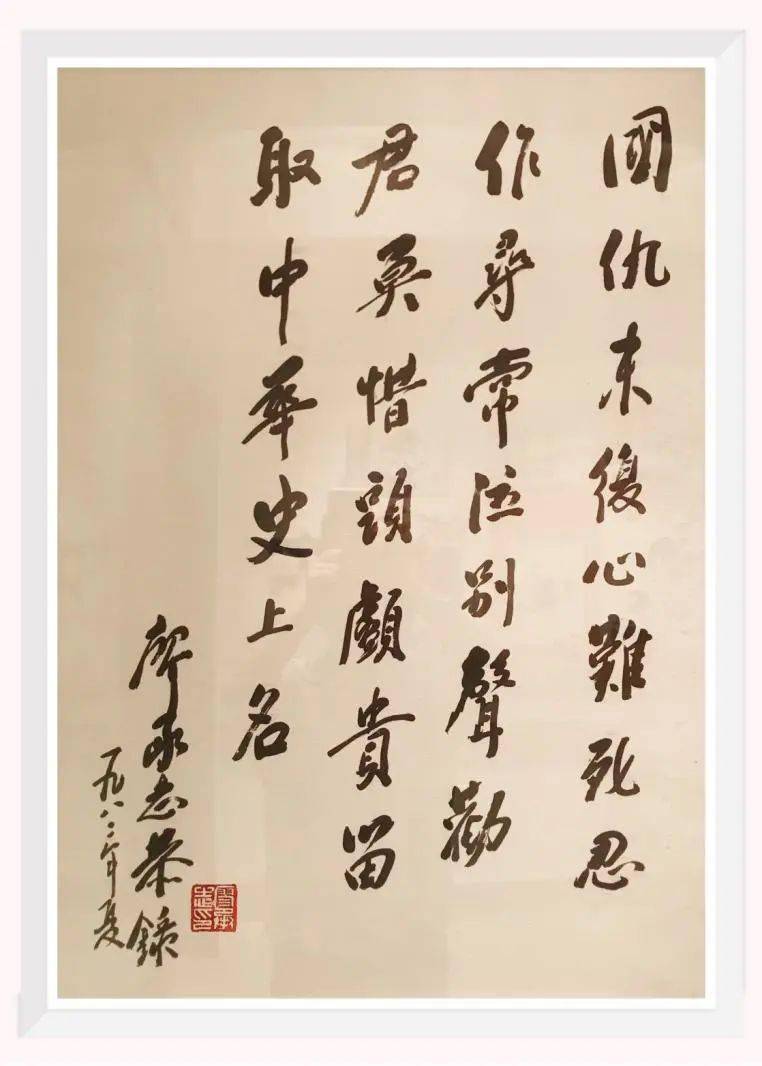 國仇未復心難死忍
作尋常泣别聲勸
君莫惜頭顱貴留
取中華史上名
廖承志恭錄
一九八二年夏
廖承志印